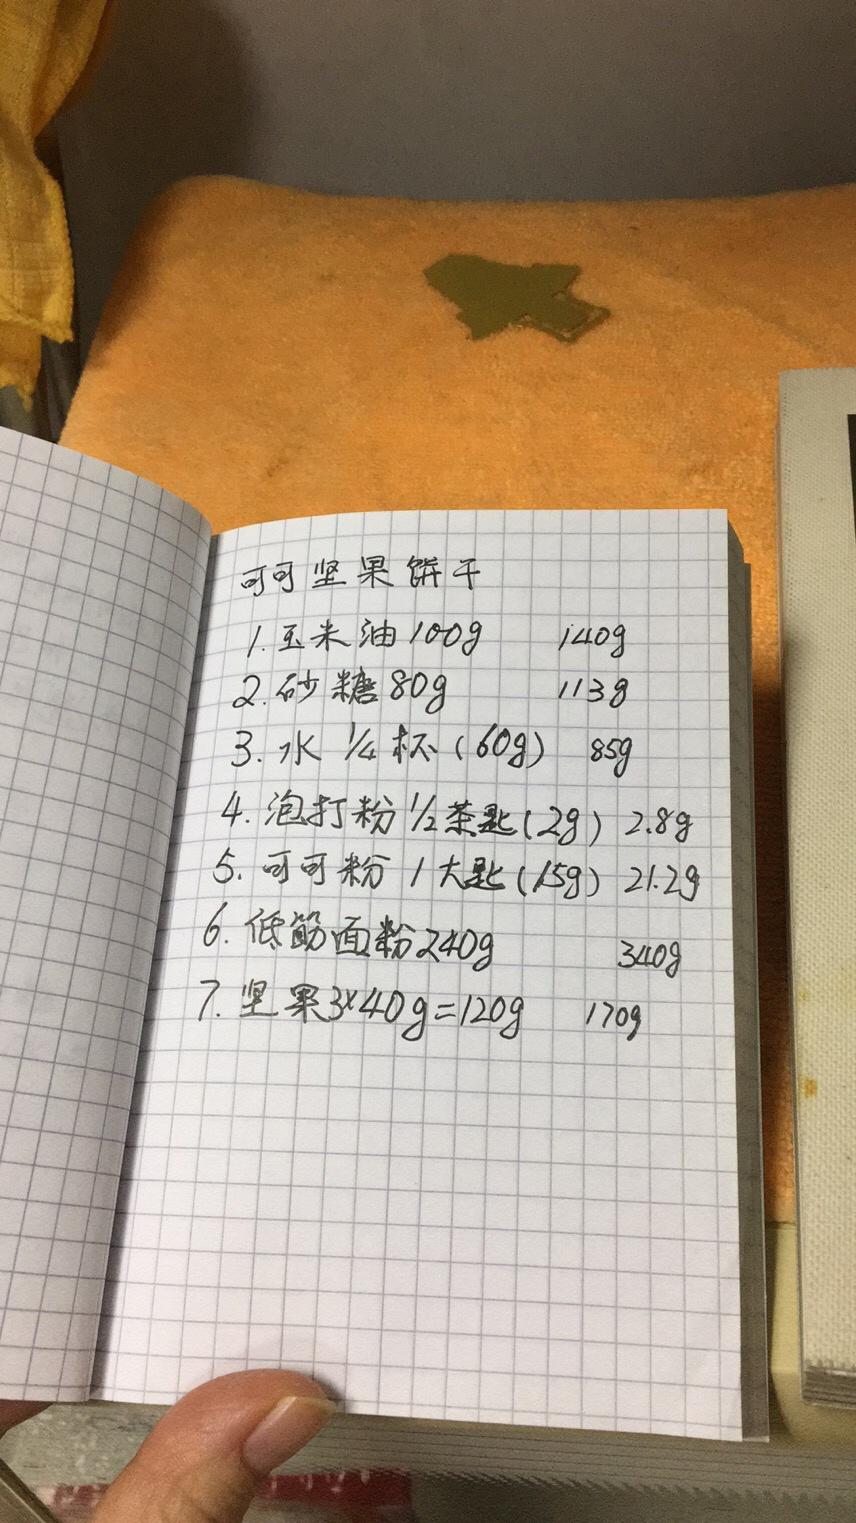 可可坚果饼干
1. 玉米油 100g 140g
2. 砂糖 80g 113g
3. 水 1/4 杯 (60g) 85g
4. 泡打粉 1/2 茶匙 (2g) 2.8g
5. 可可粉 1 大匙 (15g) 21.2g
6. 低筋面粉 240g 340g
7. 坚果 3×40g=120g 170g